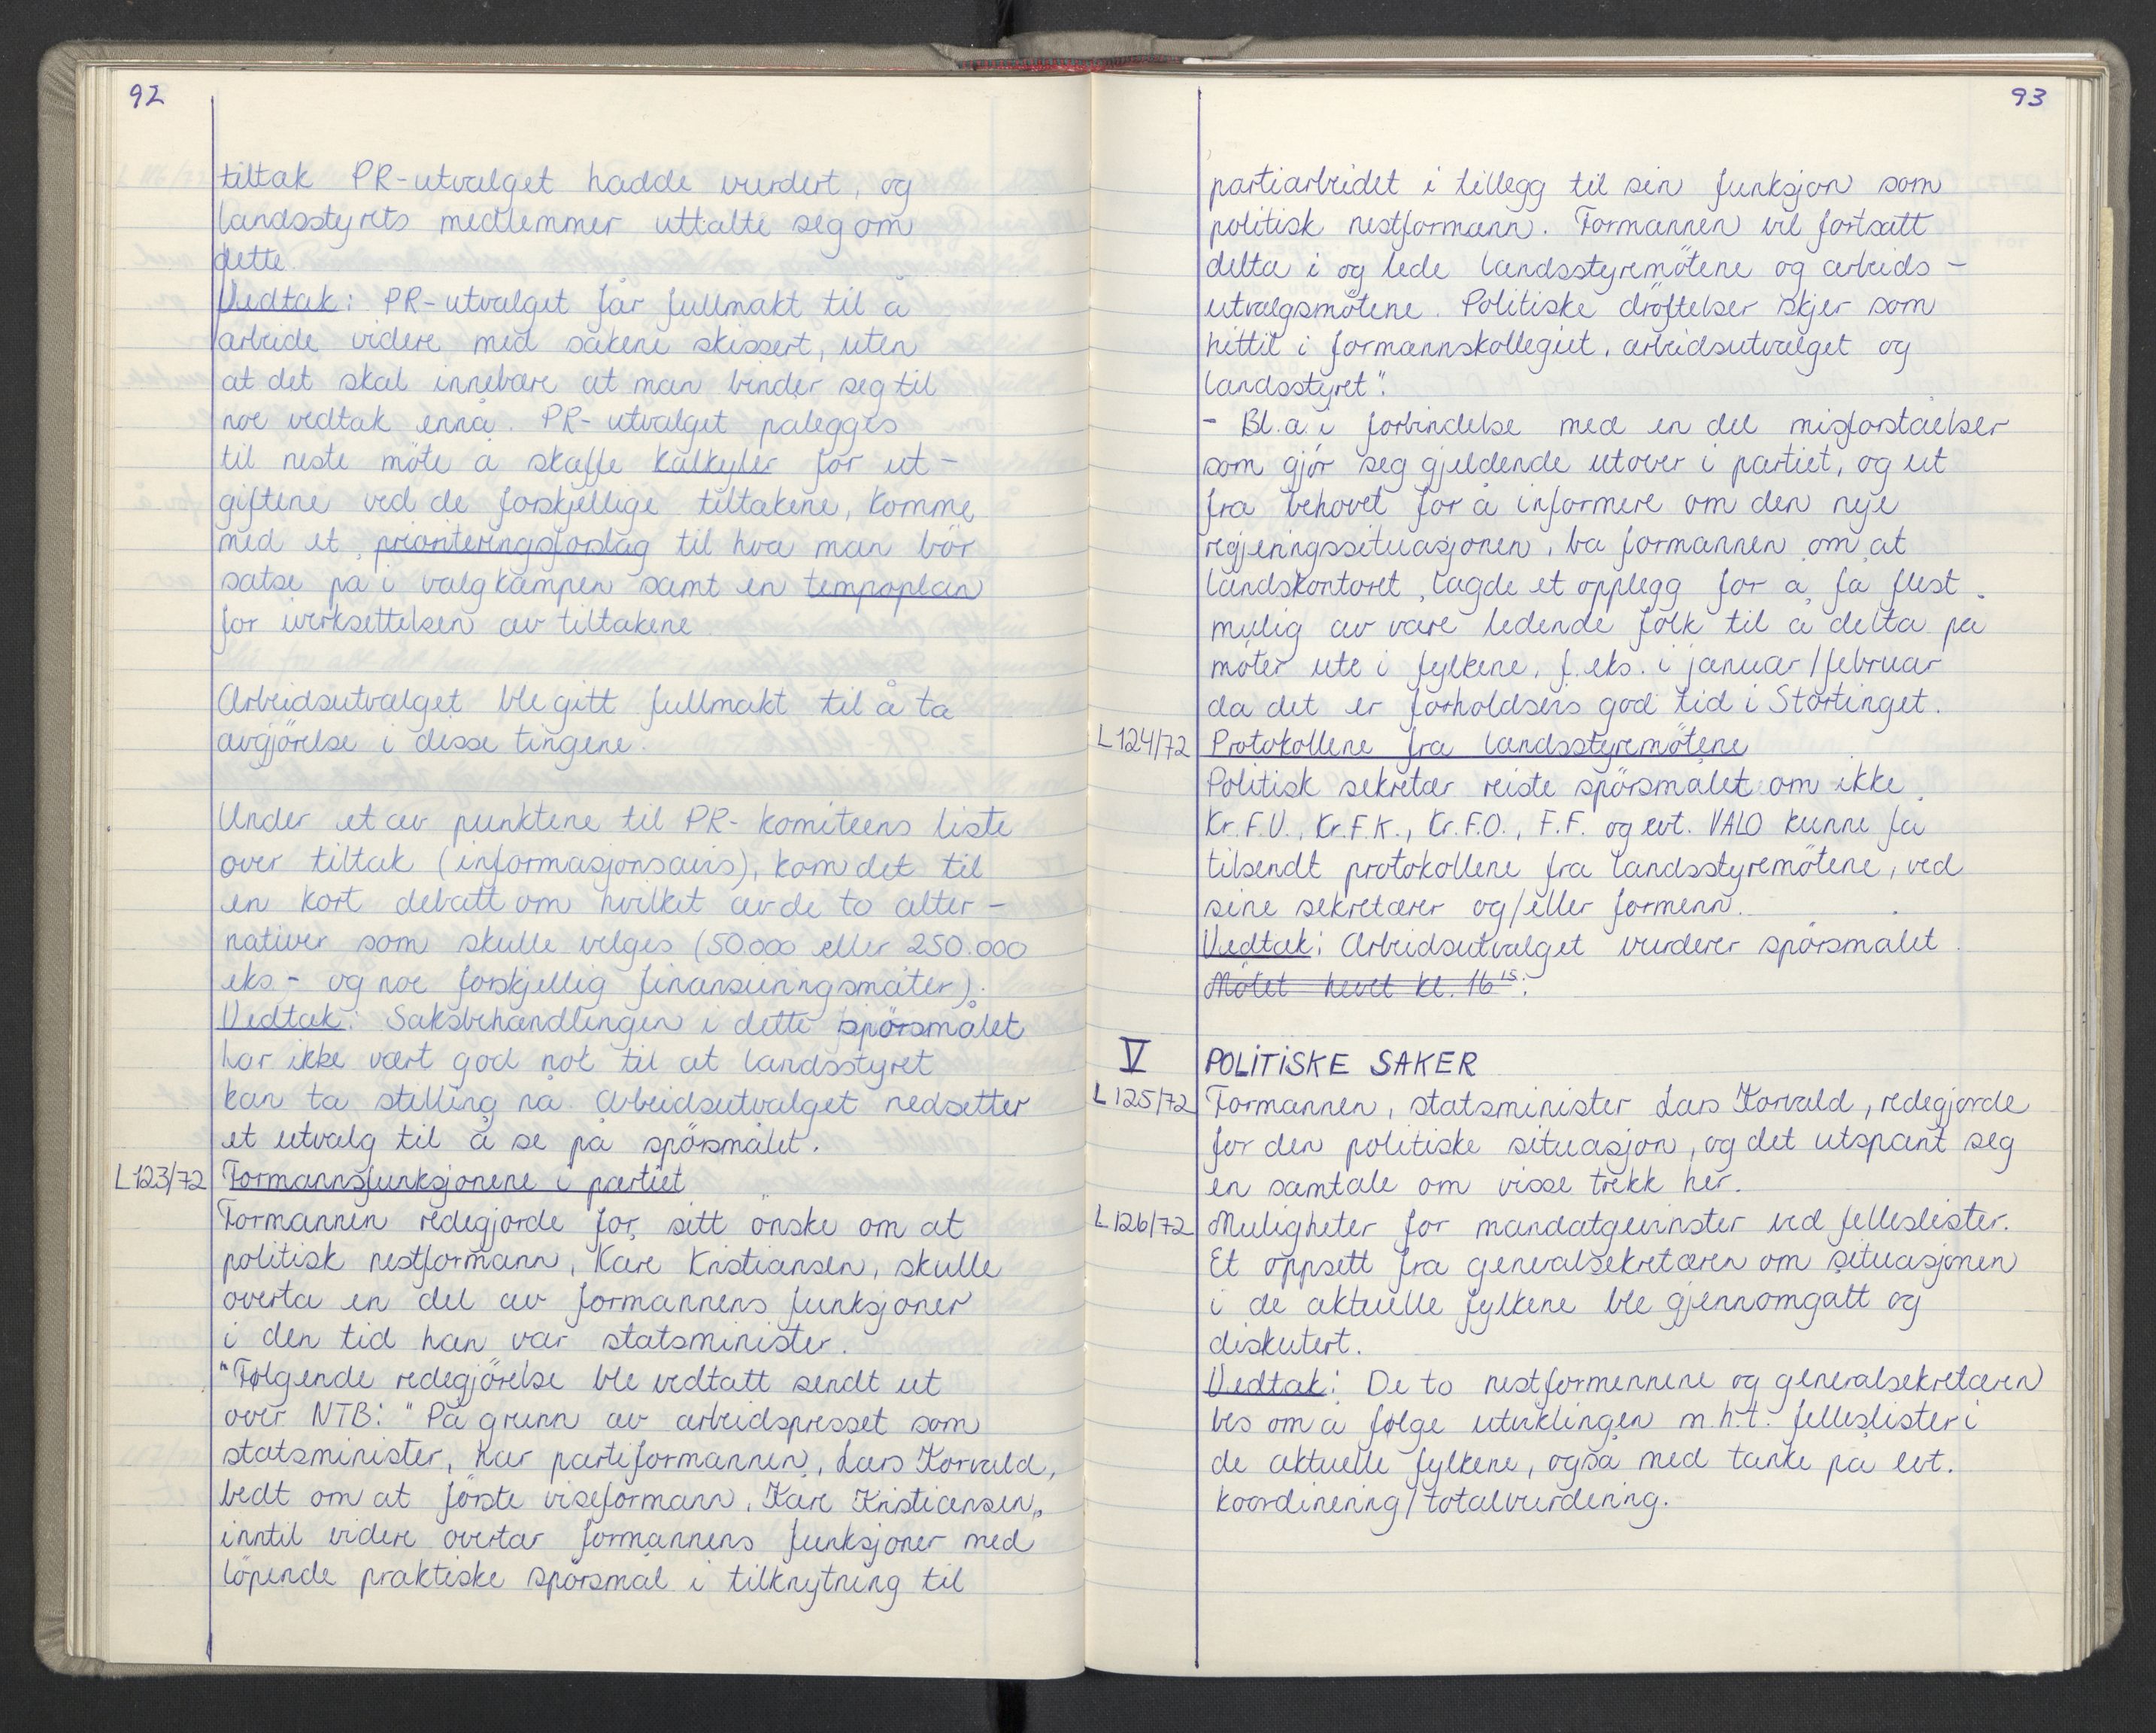 92
tiltak PR-utvalget hadde vurdert, og
landsstyrets medlemmer uttalte seg om
dette.
Vedtak: PR-utvalget får fullmakt til å
arbeide videre med sakene skissert, uten
at det skal innebære at man binder seg til
noe vedtak ennå. PR-utvalget pålegges
til neste möte å skaffe kalkyler for ut-
giftene ved de forskjellige tiltakene, komme
med et prioriteringsforslag til hva man bör
satse på i valgkampen samt en tempoplan
for iverksettelsen av tiltakene.
Arbeidsutvalget ble gitt fullmakt til å ta
avgjörelse i disse tingene.
Under et av punktene til PR-komiteens liste
over tiltak (informasjonsavis), kom det til
en kort debatt om hvilket av de to alter-
nativer som skulle velges (50.000 eller 250.000
eks - og noe forskjellig finansieringsmåter).
Vedtak: Saksbehandlingen i dette spörsmålet
har ikke vært god nok til at landsstyret
kan ta stilling nå. Arbeidsutvalget nedsetter
et utvalg til å se på spörsmålet.
L 123/72 Formannsfunksjonene i partiet
Formannen redegjorde for sitt önske om at
politisk nestformann, Kåre Kristiansen, skulle
overta en del av formannens funksjoner
i den tid han var statsminister.
"Følgende redegjörelse ble vedtatt sendt ut
over NTB: "På grunn av arbeidspresset som
statsminister, har partiformannen, Lars Korvald,
bedt om at förste viseformann, Kåre Kristiansen,
inntil videre overtar formannens funksjoner med
löpende praktiske spörsmål i tilknytning til
93
partiarbeidet i tillegg til sin funksjon som
politisk nestformann. Formannen vil fortsatt
delta i og lede landsstyremötene og arbeids-
utvalgsmötene. Politiske dröftelser skjer som
hittil i formannskollegiet, arbeidsutvalget og
landsstyret".
- Bl.a. i forbindelse med en del misforståelser
som gjör seg gjeldende utover i partiet, og ut
fra behovet for å informere om den nye
regjeringssituasjonen, ba formannen om at
landskontoret lagde et opplegg for å få flest
mulig av våre ledende folk til å delta på
möter ute i fylkene, f.eks. i januar/februar
da det er forholdsvis god tid i Stortinget.
L 124/72 Protokollene fra landsstyremötene
Politisk sekretær reiste spörsmålet om ikke
Kr.F.U., Kr.F.K., Kr.F.O., F.F. og evt. VALO kunne få
tilsendt protokollene fra landsstyremötene, ved
sine sekretærer og/eller formenn.
Vedtak: Arbeidsutvalget vurderer spörsmålet.
Mötet hevet kl. 16 15.
V POLITISKE SAKER
L 125/72 Formannen, statsminister Lars Korvald, redegjorde
for den politiske situasjon, og det utspant seg
en samtale om visse trekk her.
L 126/72 Muligheter for mandatgevinster ved felleslister.
Et oppsett fra generalsekretæren om situasjonen
i de aktuelle fylkene ble gjennomgått og
diskutert.
Vedtak: De to nestformennene og generalsekretæren
bes om å følge utviklingen m.h.t. felleslister i
de aktuelle fylkene, også med tanke på evt.
koordinering/totalvurdering.